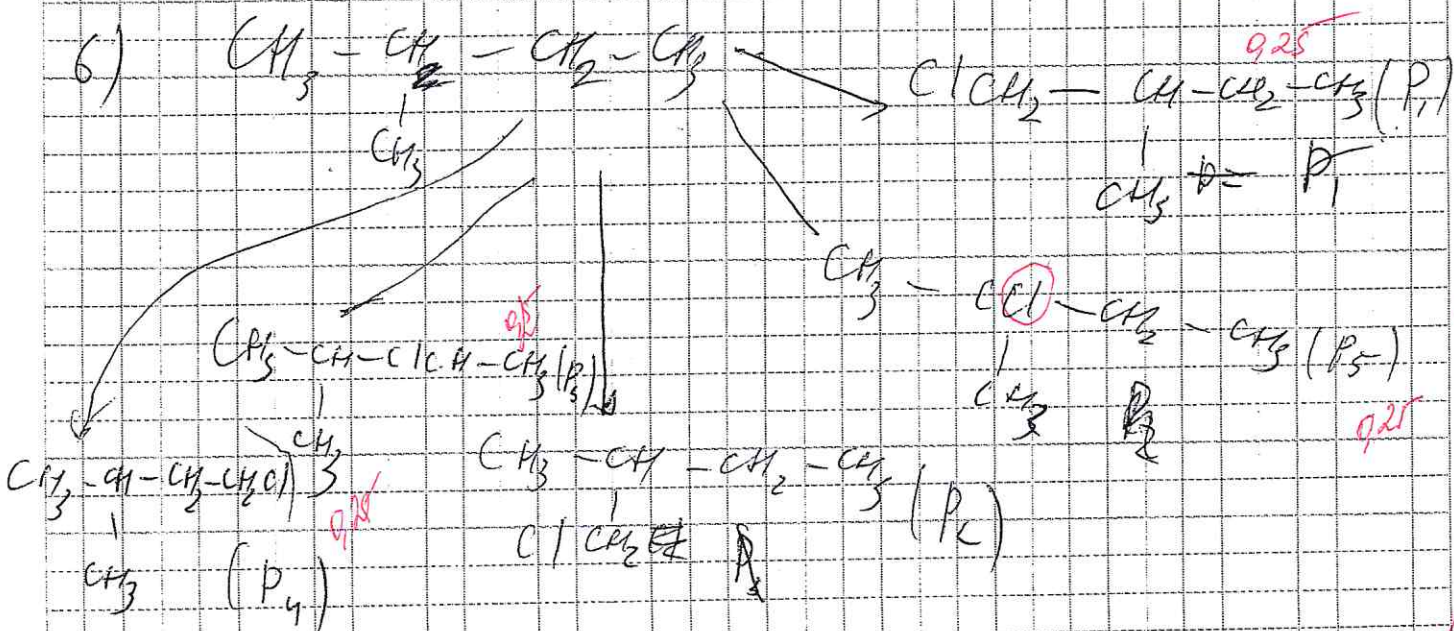 6) CH3 - CH - CH2 - CH3
CH3
0,25
ClCH2 - CH - CH2 - CH3 (P1)
CH3 P1
CH3 - CCl - CH2 - CH3 (P5)
CH3
0,25
0,25
CH3 - CH - ClCH - CH3 (P3)
CH3
CH3 - CH - CH2 - CH2Cl
CH3
0,25
(P4)
CH3 - CH - CH2 - CH3
ClCH2
(P2)